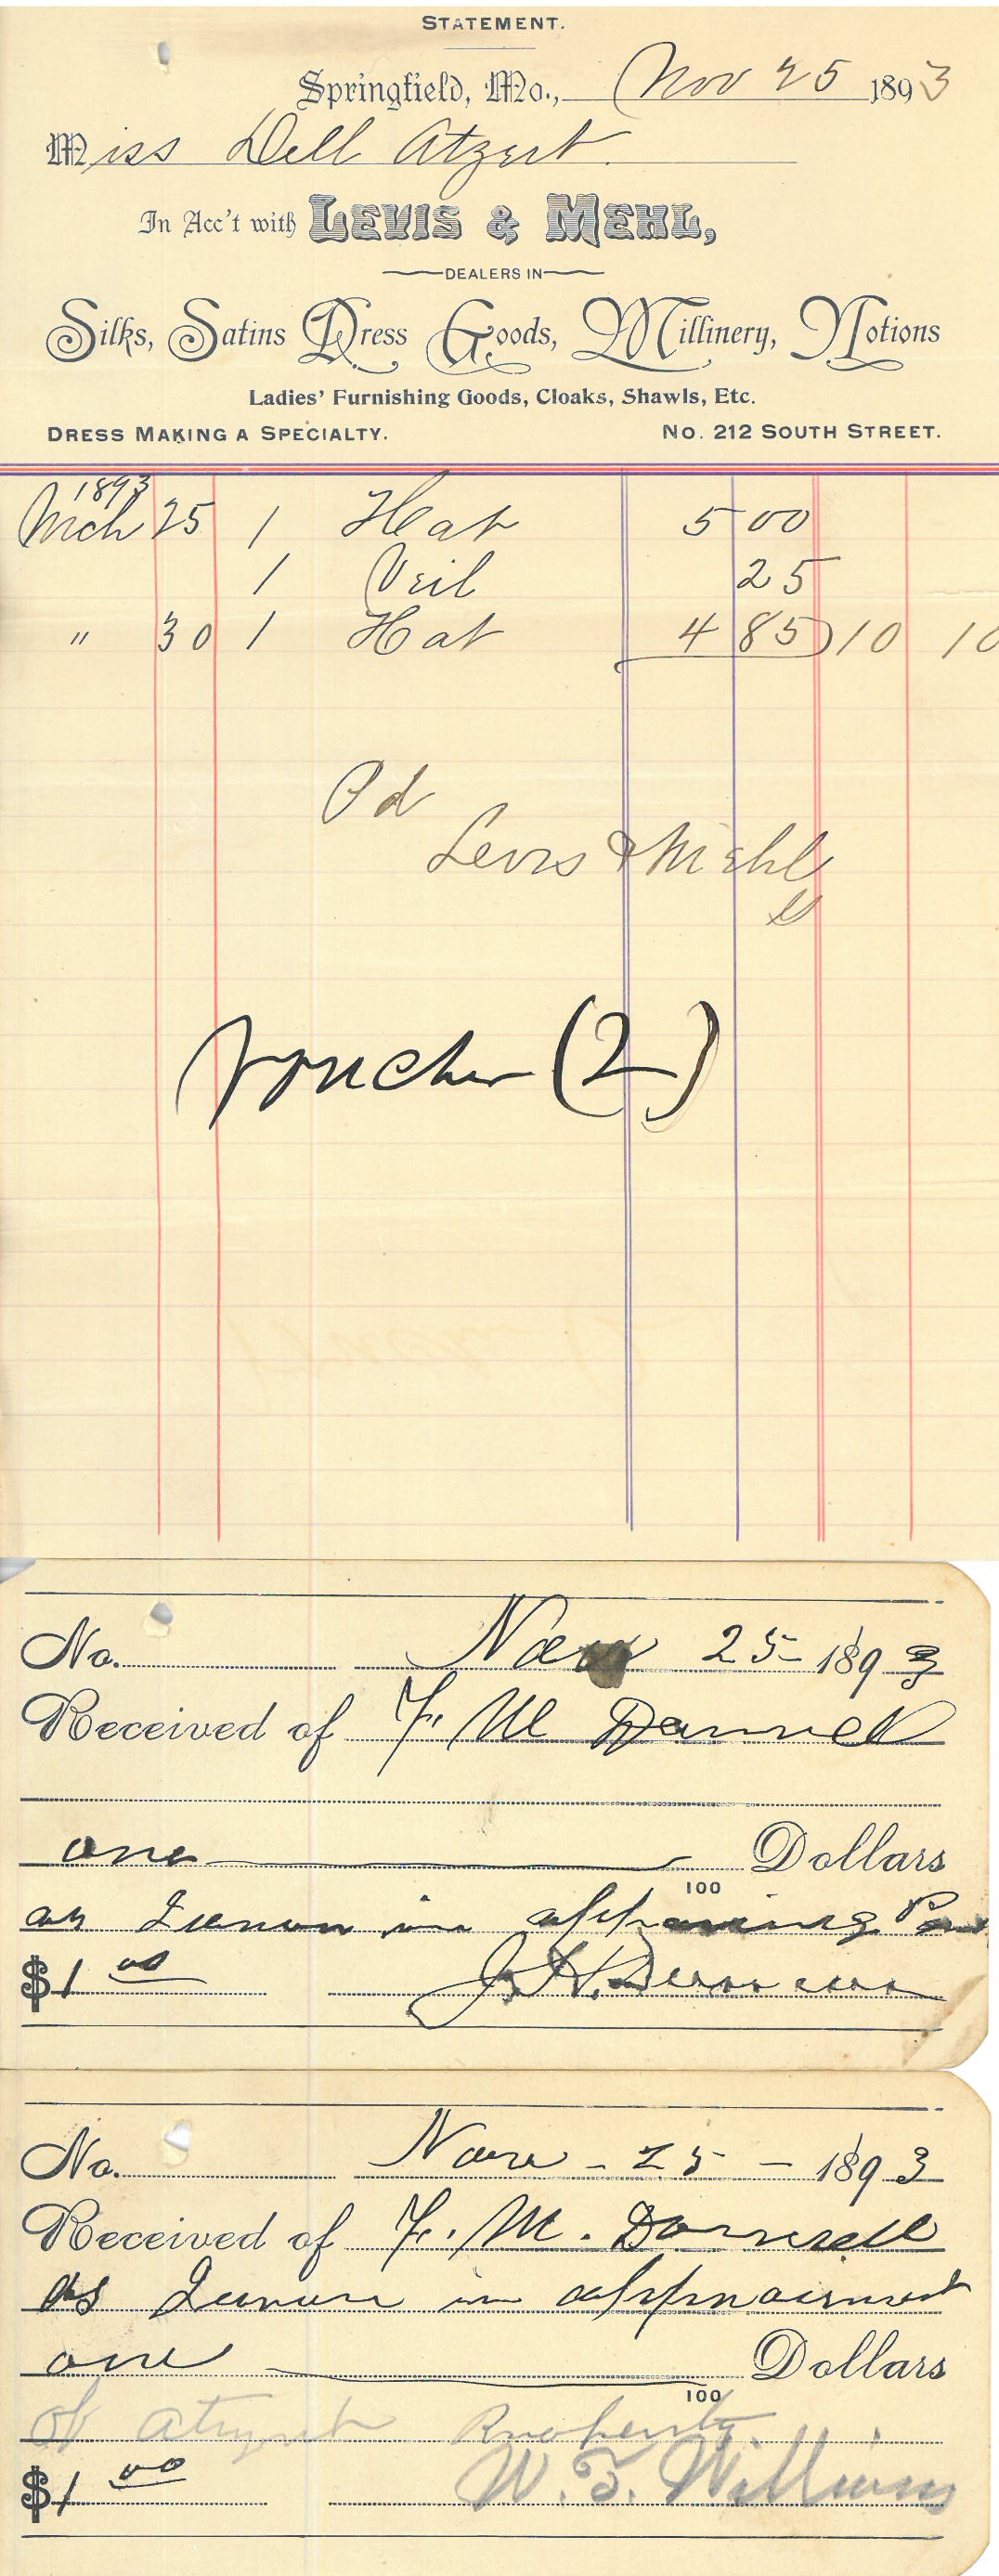 STATEMENT.
Springfield, Mo., Nov 25 1893
Miss Dell Atzert
In Acc't with LEVIS & MEHL,
DEALERS IN
Silks, Satins Dress Goods, Millinery, Notions
Ladies' Furnishing Goods, Cloaks, Shawls, Etc.
DRESS MAKING A SPECIALTY. No. 212 SOUTH STREET.
1893
Mch 25 1 Hat 5 00
1 Veil 25
" 30 1 Hat 4 85 10 10
Pd
Levis & Mehl
Voucher (2)
No. Nov 25- 1893
Received of F. M Donnell
one Dollars
100
as in appraising
$1 00 J. H. Duncan
No. Nov - 25 - 1893
Received of F. M. Donnell
as in appraisment
one Dollars
100
of Atzert Property
$1 00 W. T. Williams